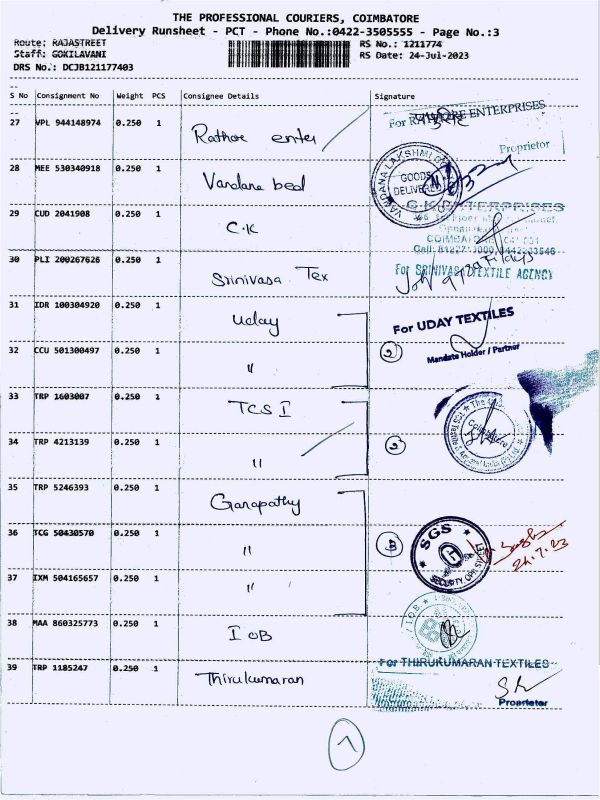 THE PROFESSIONAL COURIERS, COIMBATORE
Delivery Runsheet - PCT - Phone No.:0422-3505555 - Page No.:3
Route: RAJASTREET
Staff: GOKILAVANI
DRS No.: DCJB121177403
RS No.: 1211774
RS Date: 24-Jul-2023
S No Consignment No Weight PCS Consignee Details Signature
27 VPL 944148974 0.250 1 Rathore enter For ENTERPRISES
Proprietor
28 MEE 530340918 0.250 1 Vandana bed VANDANA LAKSHMI
GOODS
DELIVERED
29 CUD 2041908 0.250 1 C.K C.K. ENTERPRISES
30 PLI 200267626 0.250 1 Srinivasa Tex For SRINIVASA TEXTILE AGENCY
31 IDR 100304920 0.250 1 Uday For UDAY TEXTILES
32 CCU 501300497 0.250 1 " 2 Mandate Holder / Partner
33 TRP 1603007 0.250 1 TCS I
34 TRP 4213139 0.250 1 " 2 Coimbatore
35 TRP 5246393 0.250 1 Ganapathy
36 TCG 50430570 0.250 1 " 3 SGS
24.7.23
37 IXM 504165657 0.250 1 "
38 MAA 860325773 0.250 1 IOB I.O.B.
39 TRP 1185247 0.250 1 Thirukumaran For THIRUKUMARAN TEXTILES
Proprietor
7